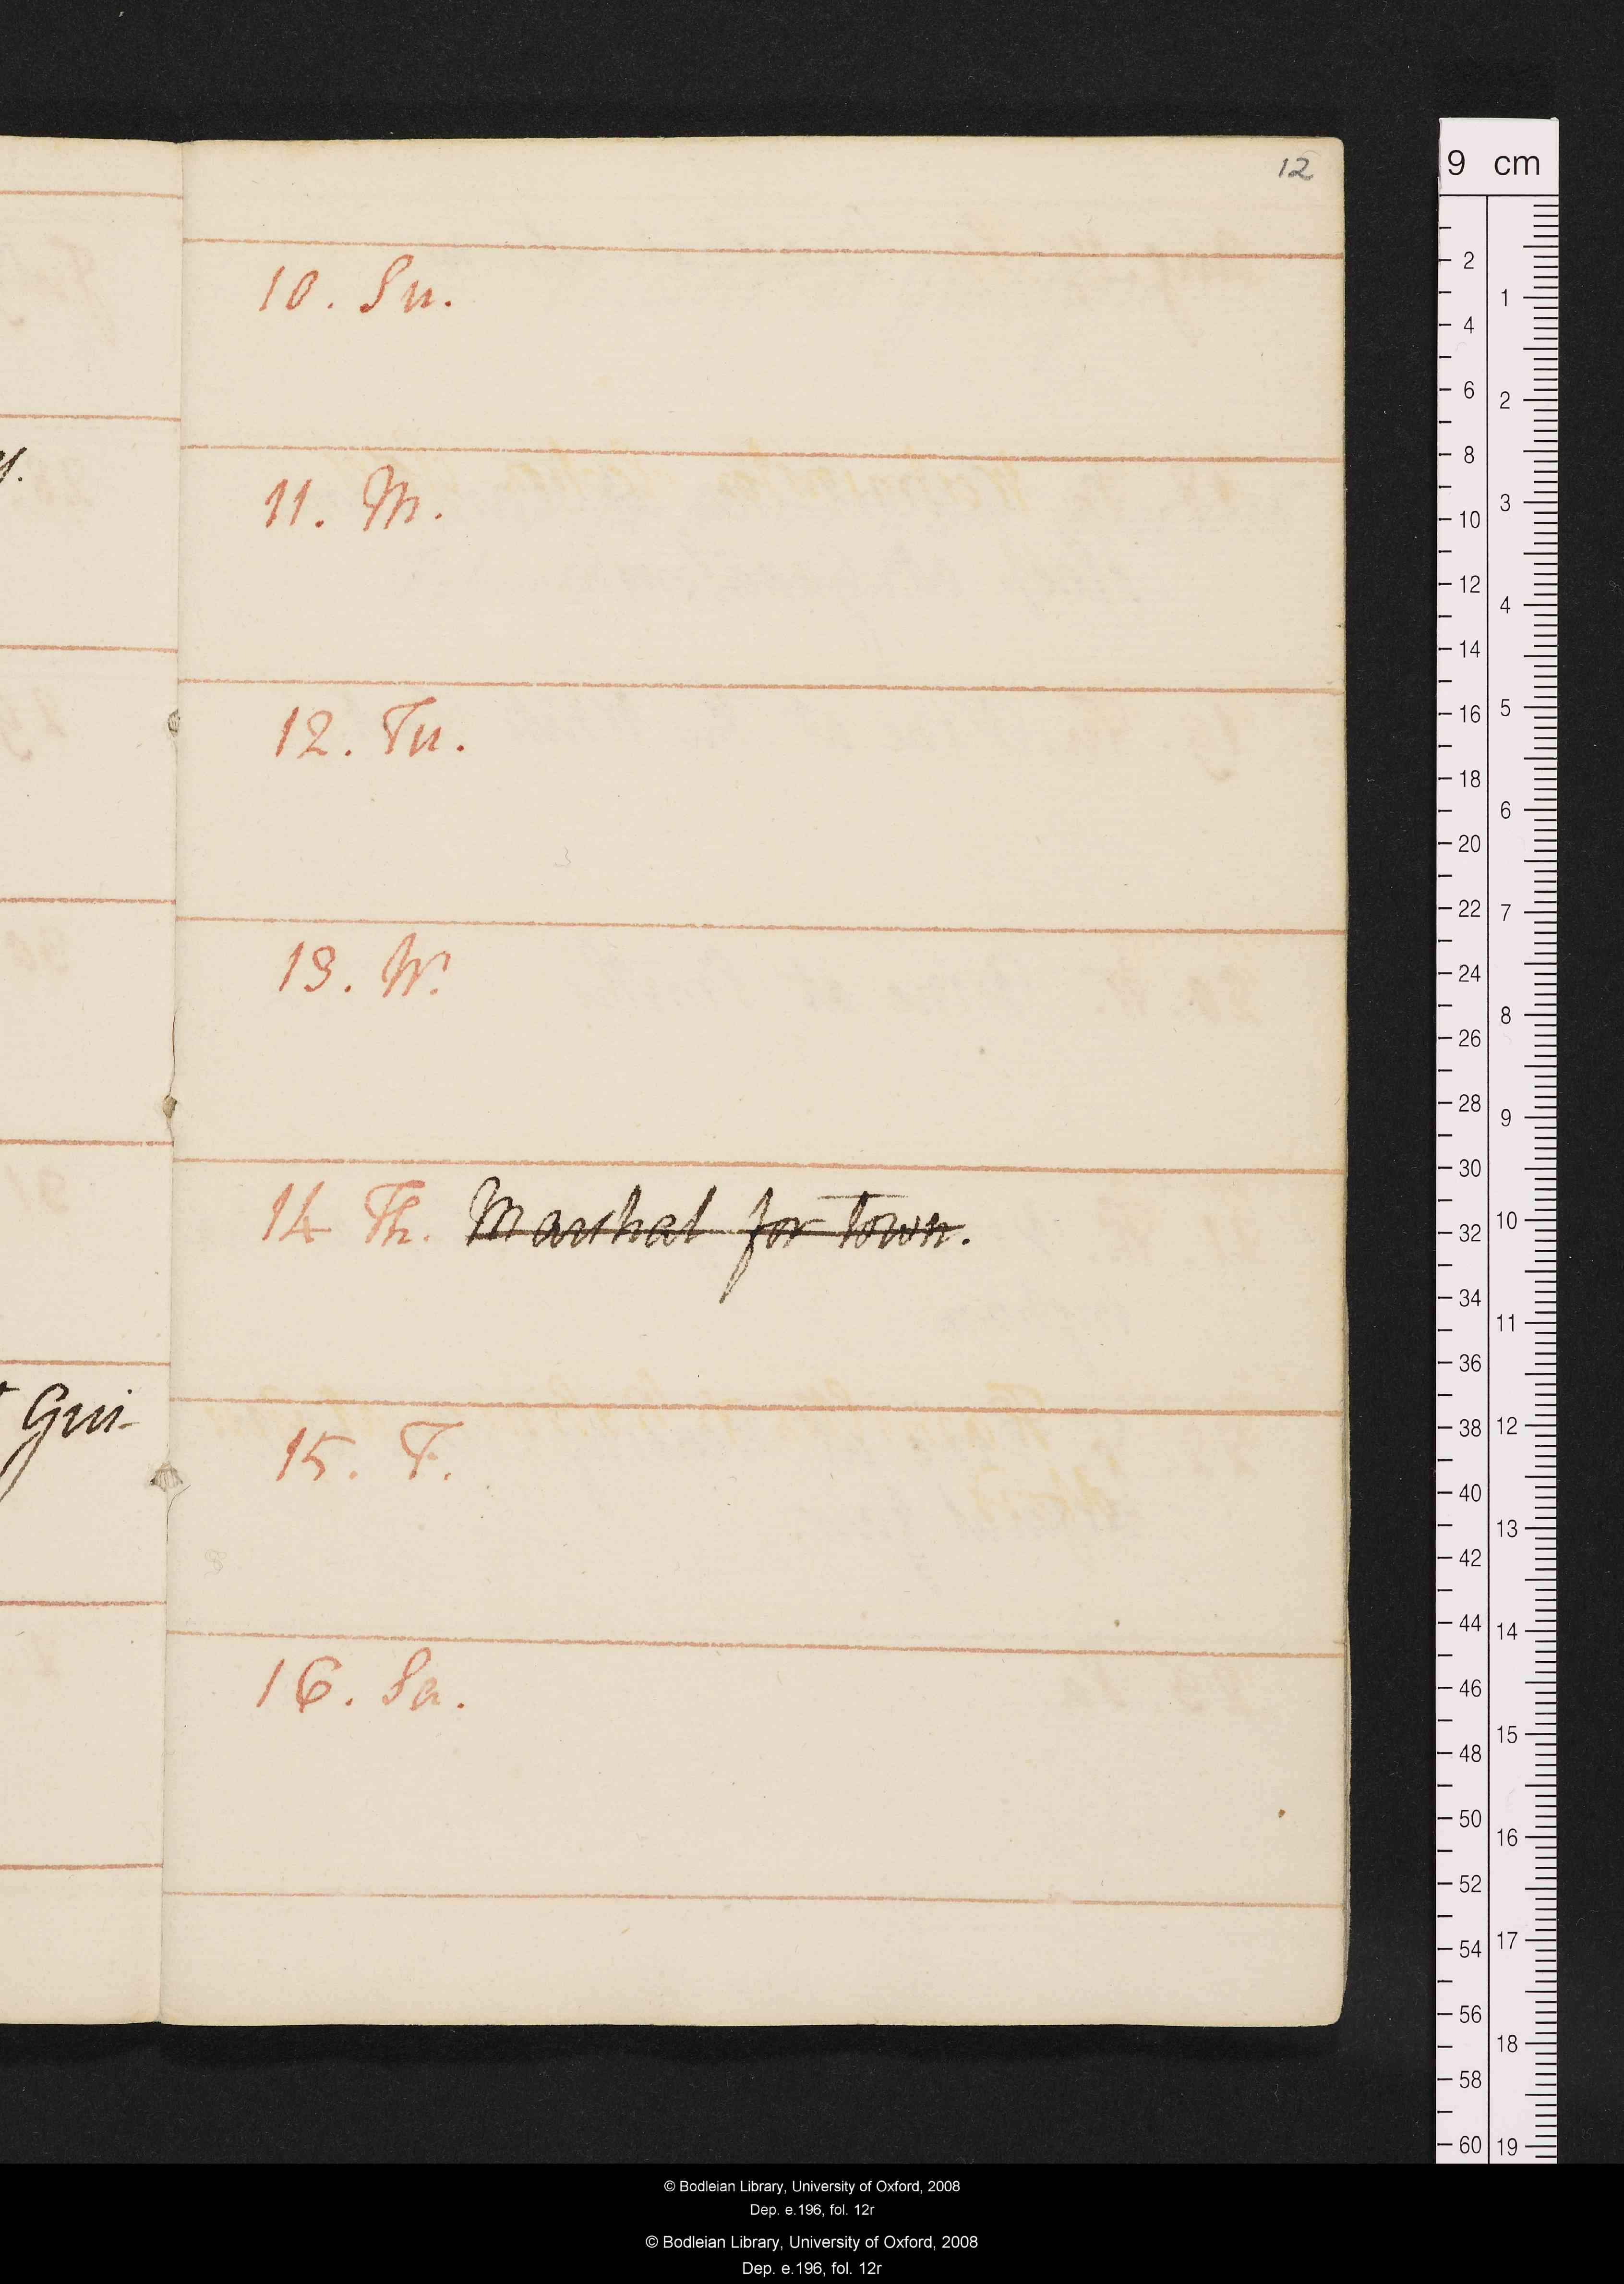 12
y.
Gui-
10. Su.
11. M.
12. Tu.
13. W.
14 Th. Marshal for Town.
15. F.
16. Sa.
9 cm
2
4
6
8
10
12
14
16
18
20
22
24
26
28
30
32
34
36
38
40
42
44
46
48
50
52
54
56
58
60
1
2
3
4
5
6
7
8
9
10
11
12
13
14
15
16
17
18
19
© Bodleian Library, University of Oxford, 2008
Dep. e.196, fol. 12r
© Bodleian Library, University of Oxford, 2008
Dep. e.196, fol. 12r